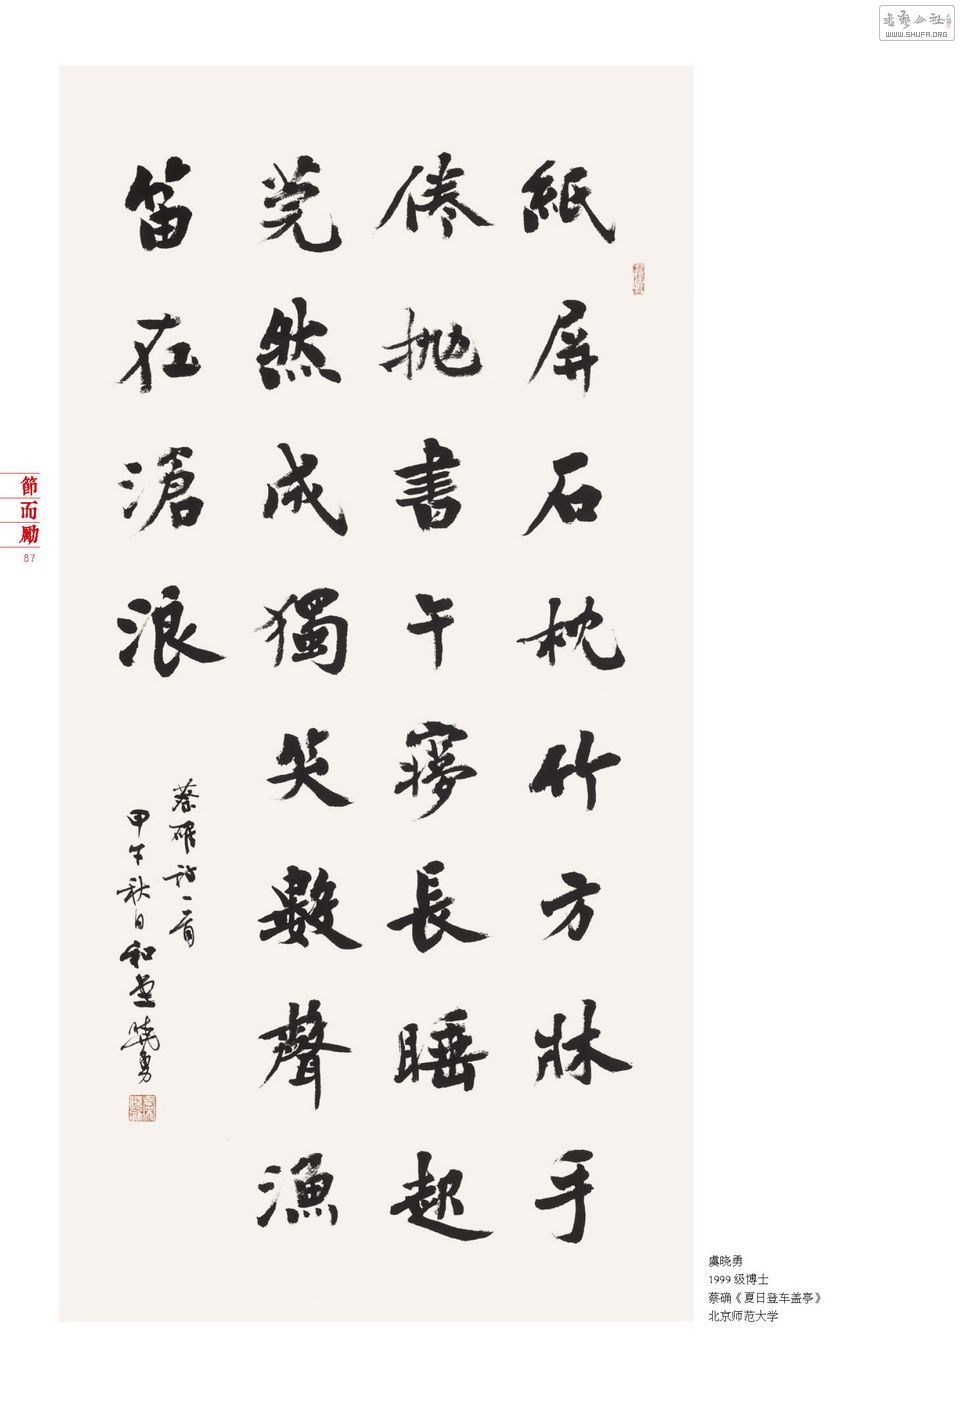 書藝公社
WWW.SHUFA.ORG
紙屏石枕竹方牀手
倦抛書午夢長睡起
莞然成獨笑數聲漁
笛在滄浪
蔡確詩一首
甲午秋日和堂曉勇
節而勵
87
虞晓勇
1999 级博士
蔡确《夏日登车盖亭》
北京师范大学